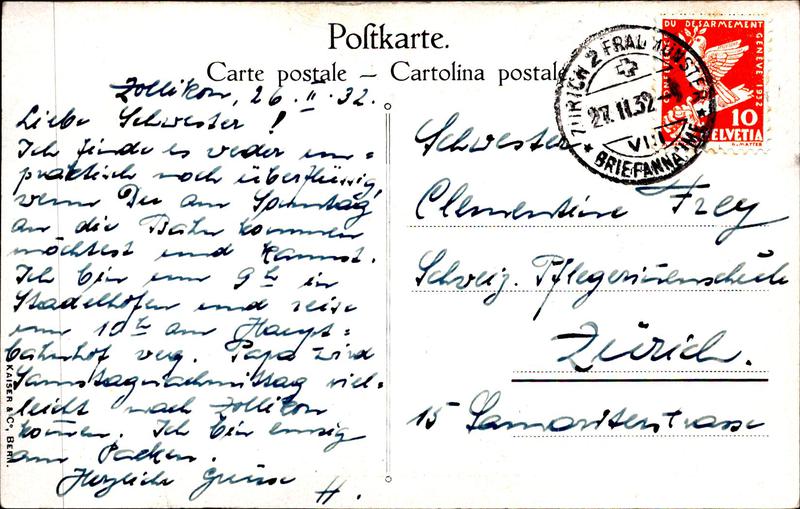 Postkarte.
Carte postale – Cartolina postale
Zollikon, 26. II. 32.
Liebe Schwester!
Ich finde es weder un=
praktisch noch überflüssig,
wenn Du am Sonntag
an die Bahn kommen
möchtest und kannst.
Ich bin um 9h in
Stadelhofen und reise
um 10h am Haupt=
bahnhof weg. Papa wird
Samstagnachmittag viel=
leicht nach Zollikon
kommen. Ich bin emsig
am Packen.
Herzliche Grüsse
H.
KAISER & Co. BERN.
DU DÉSARMEMENT
GENÈVE 1932
10
HELVETIA
ZÜRICH 2 FRAUMÜNSTER
27.II.32
VIII
* BRIEFANNAHME *
Schwester
Clementine Frey
Schweiz. Pflegerinnenschule
Zürich.
15 Samariterstrasse